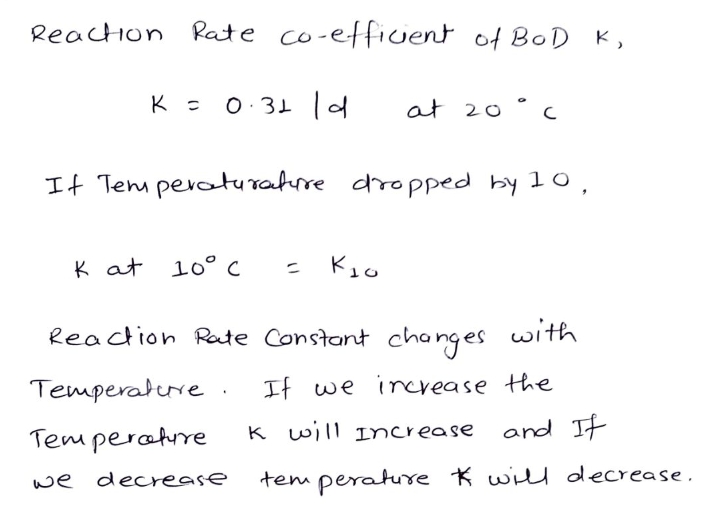 Reaction Rate co-efficient of BOD K,
K = 0.31 /d at 20°C
If Temperaturature dropped by 10,
K at 10°C = K10
Reaction Rate Constant changes with
Temperature. If we increase the
Temperature K will Increase and If
we decrease temperature K will decrease.